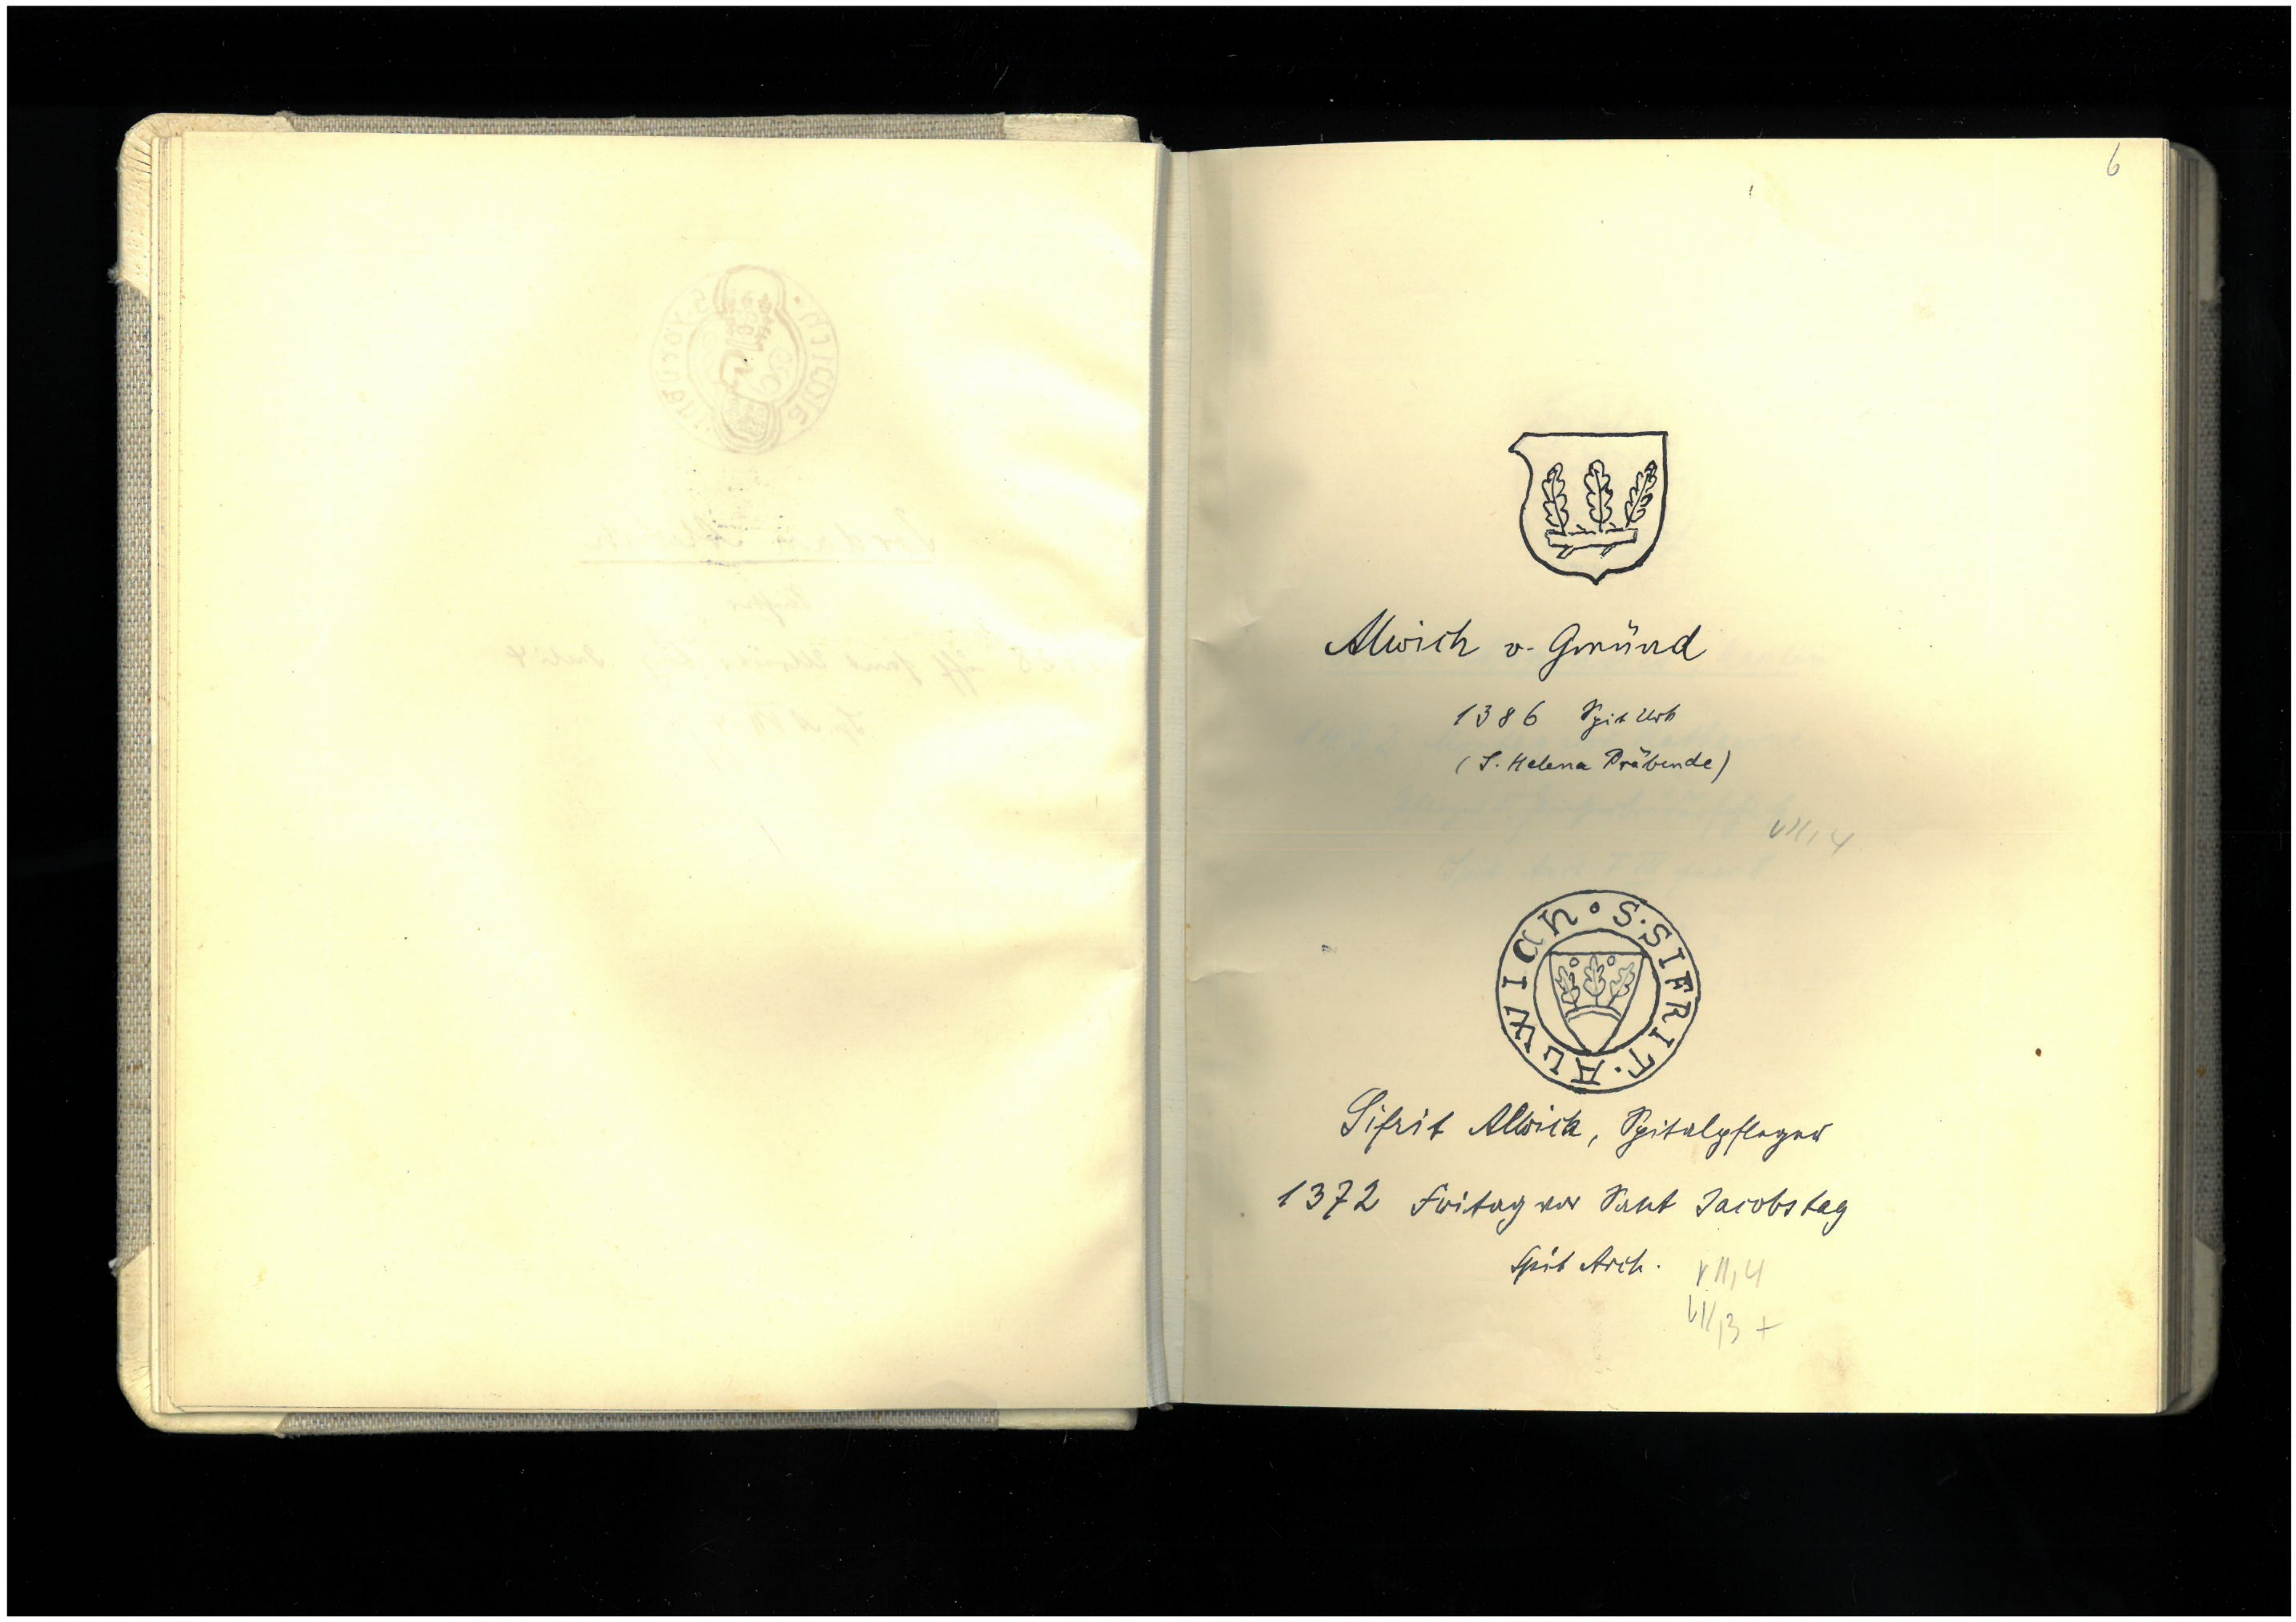 6
Alwich v. Gmünd
1386 Spit Urb
(S. Helena Präbende)
VII, 4
S · SIFRIT · ALWICH ·
Sifrit Alwich, Spitalpfleger
1372 Fritag vor Sant Jacobstag
Spit Arch.
VII, 4
VII, 3 +